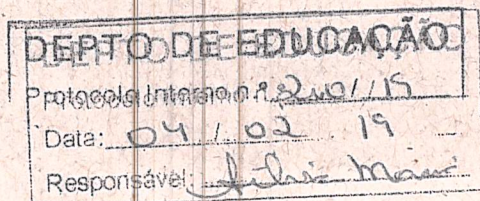 DEPTO DE EDUCAÇÃO
Protocolo Interno nº /19
Data: 04 / 02 19
Responsável: